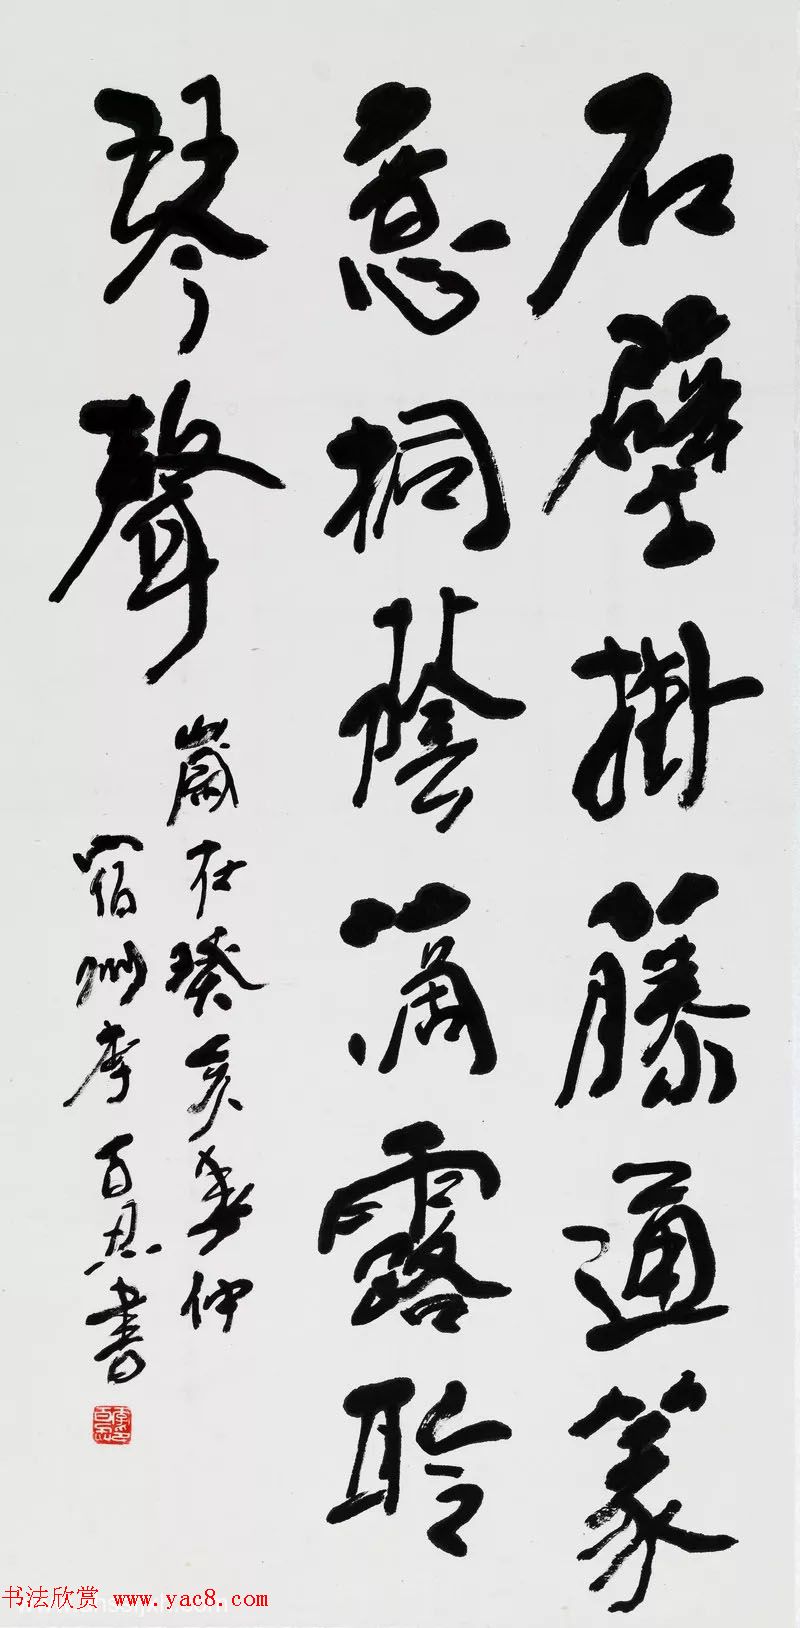 石壁掛藤通篆
意桐蔭滴露聆
琴聲
歲在癸亥春仲
宿州李百忍書
书法欣赏 www.yac8.com